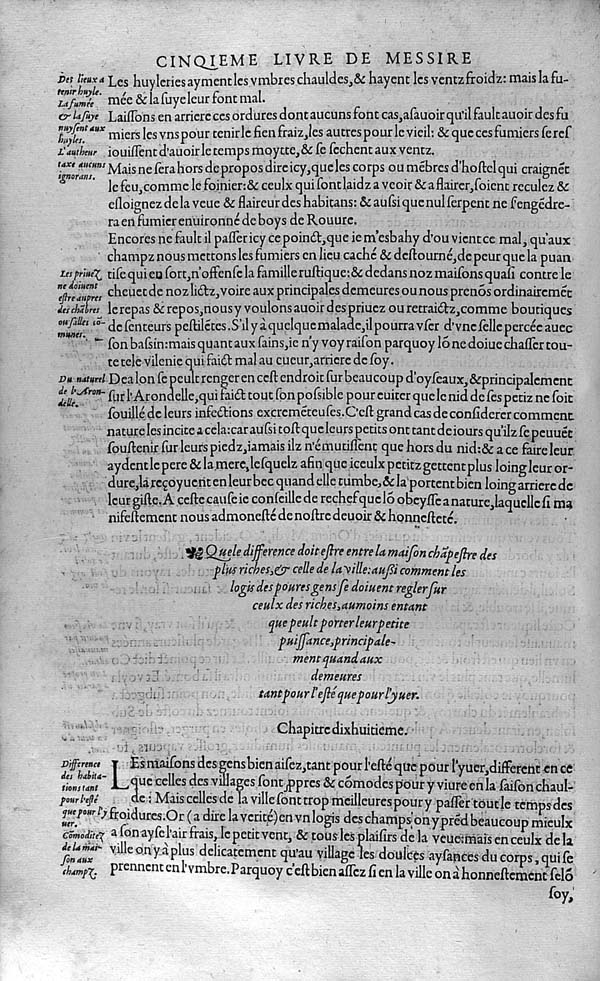 CINQIEME LIVRE DE MESSIRE
Des lieux a
tenir huyle.
La fumée
& la suye
nuysent aux
huyles.
L'autheur
taxe aucuns
ignorans.
Les huyleries ayment les vmbres chauldes, & hayent les ventz froidz: mais la fu-
mée & la suye leur font mal.
Laissons en arriere ces ordures dont aucuns font cas, asauoir qu'il fault auoir des fu
miers les vns pour tenir le fien fraiz, les autres pour le vieil: & que ces fumiers se resſ
iouissent d'auoir le temps moytte, & se sechent aux ventz.
Mais ne sera hors de propos dire icy, que les corps ou mēbres d'hostel qui craignēt
le feu, comme le foinier: & ceulx qui sont laidz a veoir & a flairer, soient reculez &
esloignez de la veue & flaireur des habitans: & aussi que nul serpent ne s'engēdre-
ra en fumier enuironné de boys de Rouure.
Encores ne fault il passer icy ce poinct, que ie m'esbahy d'ou vient ce mal, qu'aux
champz nous mettons les fumiers en lieu caché & destourné, de peur que la puan
Les priuez
ne doiuent
estre aupres
des chābres
ou salles cō-
munes.
tise qui en sort, n'offense la famille rustique: & dedans noz maisons quasi contre le
cheuet de noz lictz, voire aux principales demeures ou nous prenōs ordinairemēt
le repas & repos, nous y voulons auoir des priuez ou retraictz, comme boutiques
de senteurs pestilētes. S'il y à quelque malade, il pourra vser d'vne selle percée auec
son bassin: mais quant aux sains, ie n'y voy raison parquoy lō ne doiue chasser tou-
te tele vilenie qui faict mal au cueur, arriere de soy.
Du naturel
de l'Aron-
delle.
Dea lon se peult renger en cest endroit sur beaucoup d'oyseaux, & principalement
sur l'Arondelle, qui faict tout son possible pour euiter que le nid de ses petiz ne soit
souillé de leurs infections excremēteuses. C'est grand cas de considerer comment
nature les incite a cela: car aussi tost que leurs petits ont tant de iours qu'ilz se peuuēt
soustenir sur leurs piedz, iamais ilz n'émutissent que hors du nid: & a ce faire leur
aydent le pere & la mere, lesquelz afin que iceulx petitz gettent plus loing leur or-
dure, la reçoyuent en leur bec quand elle tumbe, & la portent bien loing arriere de
leur giste. A ceste cause ie conseille de rechef que lō obeysse a nature, laquelle si ma
nifestement nous admonesté de nostre deuoir & honnesteté.
Quele difference doit estre entre la maison chāpestre des
plus riches, & celle de la ville: aussi comment les
logis des poures gens se doiuent regler sur
ceulx des riches, aumoins entant
que peult porter leur petite
puissance, principale-
ment quand aux
demeures
tant pour l'esté que pour l'yuer.
Chapitre dixhuitieme.
Difference
des habita-
tions tant
pour l'esté
que pour l'y
uer.
Cōmoditez
de la mai-
son aux
champz.
LEs maisons des gens bien aisez, tant pour l'esté que pour l'yuer, different en ce
que celles des villages sont ꝓpres & cōmodes pour y viure en la saison chaul-
de: Mais celles de la ville sont trop meilleures pour y passer tout le temps des
froidures. Or (a dire la verité) en vn logis des champs on y prēd beaucoup mieulx
a son ayse l'air frais, le petit vent, & tous les plaisirs de la veue: mais en ceulx de la
ville on y à plus delicatement qu'au village les doulces aysances du corps, qui se
prennent en l'vmbre. Parquoy c'est bien assez si en la ville on à honnestement selō
soy,